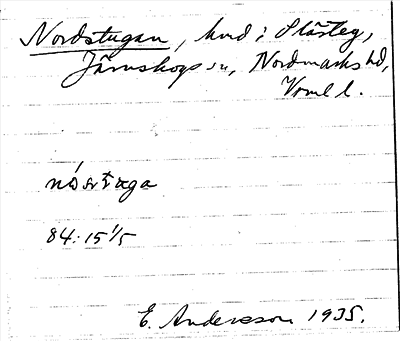 Nordstugan, hmd i Slästeg,
Järnskogs sn, Nordmarks hd,
Vrml l.
nó  stuga
84: 15 1/5
E. Andersson 1935.